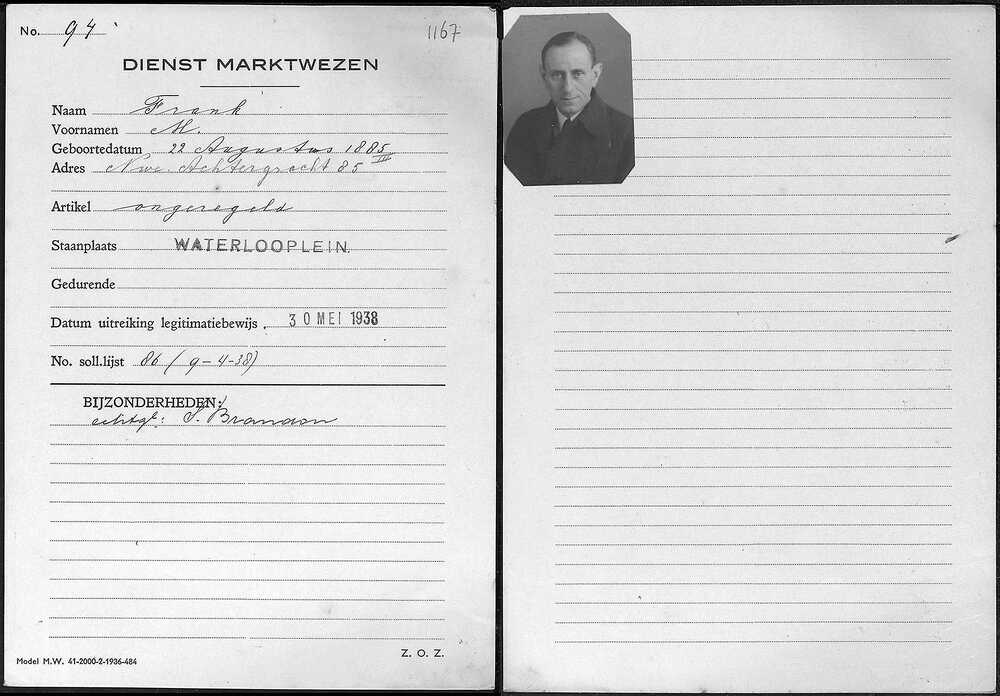 No. 94
1167
DIENST MARKTWEZEN
Naam Frank
Voornamen M.
Geboortedatum 22 Augustus 1885
Adres Nwe. Achtergracht 85 III
Artikel ongeregeld
Staanplaats WATERLOOPLEIN.
Gedurende
Datum uitreiking legitimatiebewijs . 30 MEI 1938
No. soll.lijst 86 (9-4-38)
BIJZONDERHEDEN:
echtge: S. Brandon
Z. O. Z.
Model M.W. 41-2000-2-1936-484